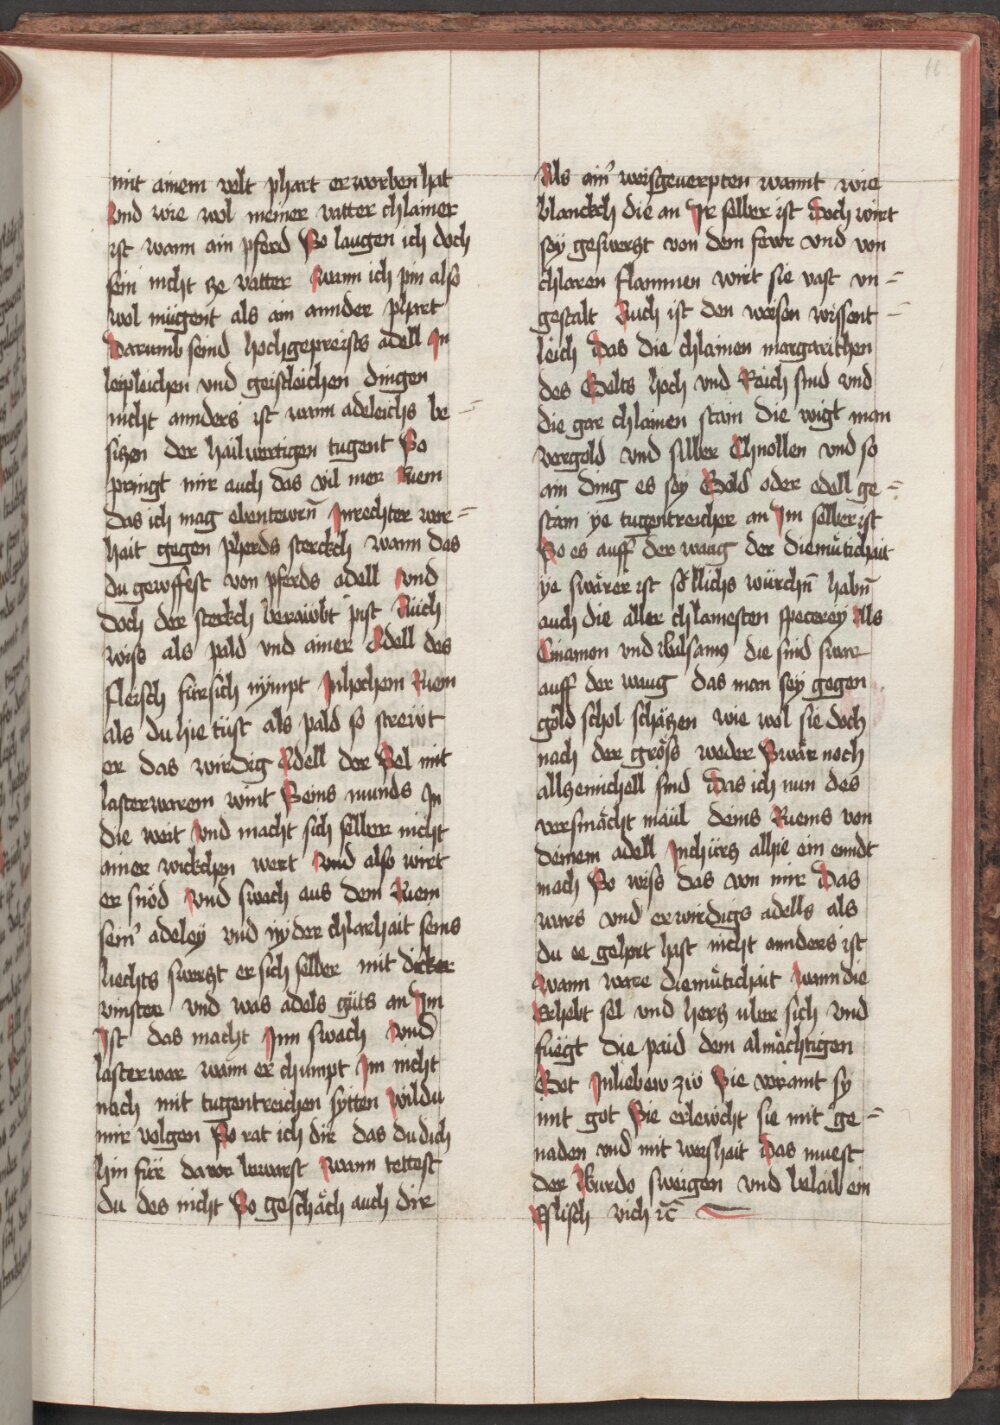 mit ainem velt phart erworben hat
Und wie wol meiner vatter chlainer
ist wann ain pferd So laugen ich doch
sein nicht ze vatter wann ich pin also
wol mügent als ain annder phart
Darumb seind hochgepreists adell In
leipleichen vnd geistleichen dingen
nicht annders ist wann adeleichs be=
sitzen der hailwertigen tugent So
pringt mir auch das vil mer Ruem
das ich mag ebentewrn̄ Inrechter war=
hait gegen pherds sterckch wann das
du gewffest von pferds adell vnd
doch der sterkch beraubt pist Auch
wiss als pald vnd ainer Adell des
fleisch fürsich nympt Inhochem Ruem
als du hie tüst als pald so strewt
er das wirdig Adell der Sel mit
lasterwarem wint Seins munds In
die weit vnd macht sich selber nicht
ainer wickchen wert vnd also wirt
er snöd vnd swach aus dem Ruem
sein' adeley vnd nyder chlarhait seins
liechts swerczt er sich selber mit dicker
vinster vnd was adels güts an Im
Ist das macht Inn swach vnd
lasterwar wann er chumpt Im nicht
nach mit tugentreichen sytten wildu
mir volgen So rat ich dir das du dich
hin für dauor bewarst wann tettest
du des nicht So geschäch auch dir
Als ain' weisgeuerpten wannt wie
blanckch die an Ir selber ist doch wirt
sy geswerczt von dem fewr vnd von
chlaren flammen wirt sie vast vn=
gestalt Auch ist den weisen wissent=
leich das die chlainen margarithen
des Gelts hoch vnd Reich sind vnd
die gar chlainen stain die wigt man
vergold vnd silber Chnollen vnd so
ain ding es sey Gold oder edell ge=
stain ye tugentreicher an Im selber ist
So es auff der waag der diemütichait
ye swärer ist söllichs würchn̄ habn̄
auch die aller chlainesten specerey Als
Cinamon vnd Walsamg die sind swar
auff der waag das man sey gegen
gold schol schätzen wie wol sie doch
nach der gröss weder Swär noch
allzemichell sind das ich nun des
versmächt maül deins Ruems von
deinem adell Inchürcz alhie ein enndt
mach So wiss das von mir das
wars vnd erwirdigs adells als
du ee gehort hast nicht annders ist
wann ware diemütichait wann die
Erhebt sel vnd hercz uber sich vnd
fuegt die paid dem almächtigen
Got Inliebew zw Sie veraint sy
mit got Sie erlewcht sie mit ge=
naden vnd mit weishait das muest
der Burdo sweigen vnd belaib ein
Eslisch vich ꝛc̄